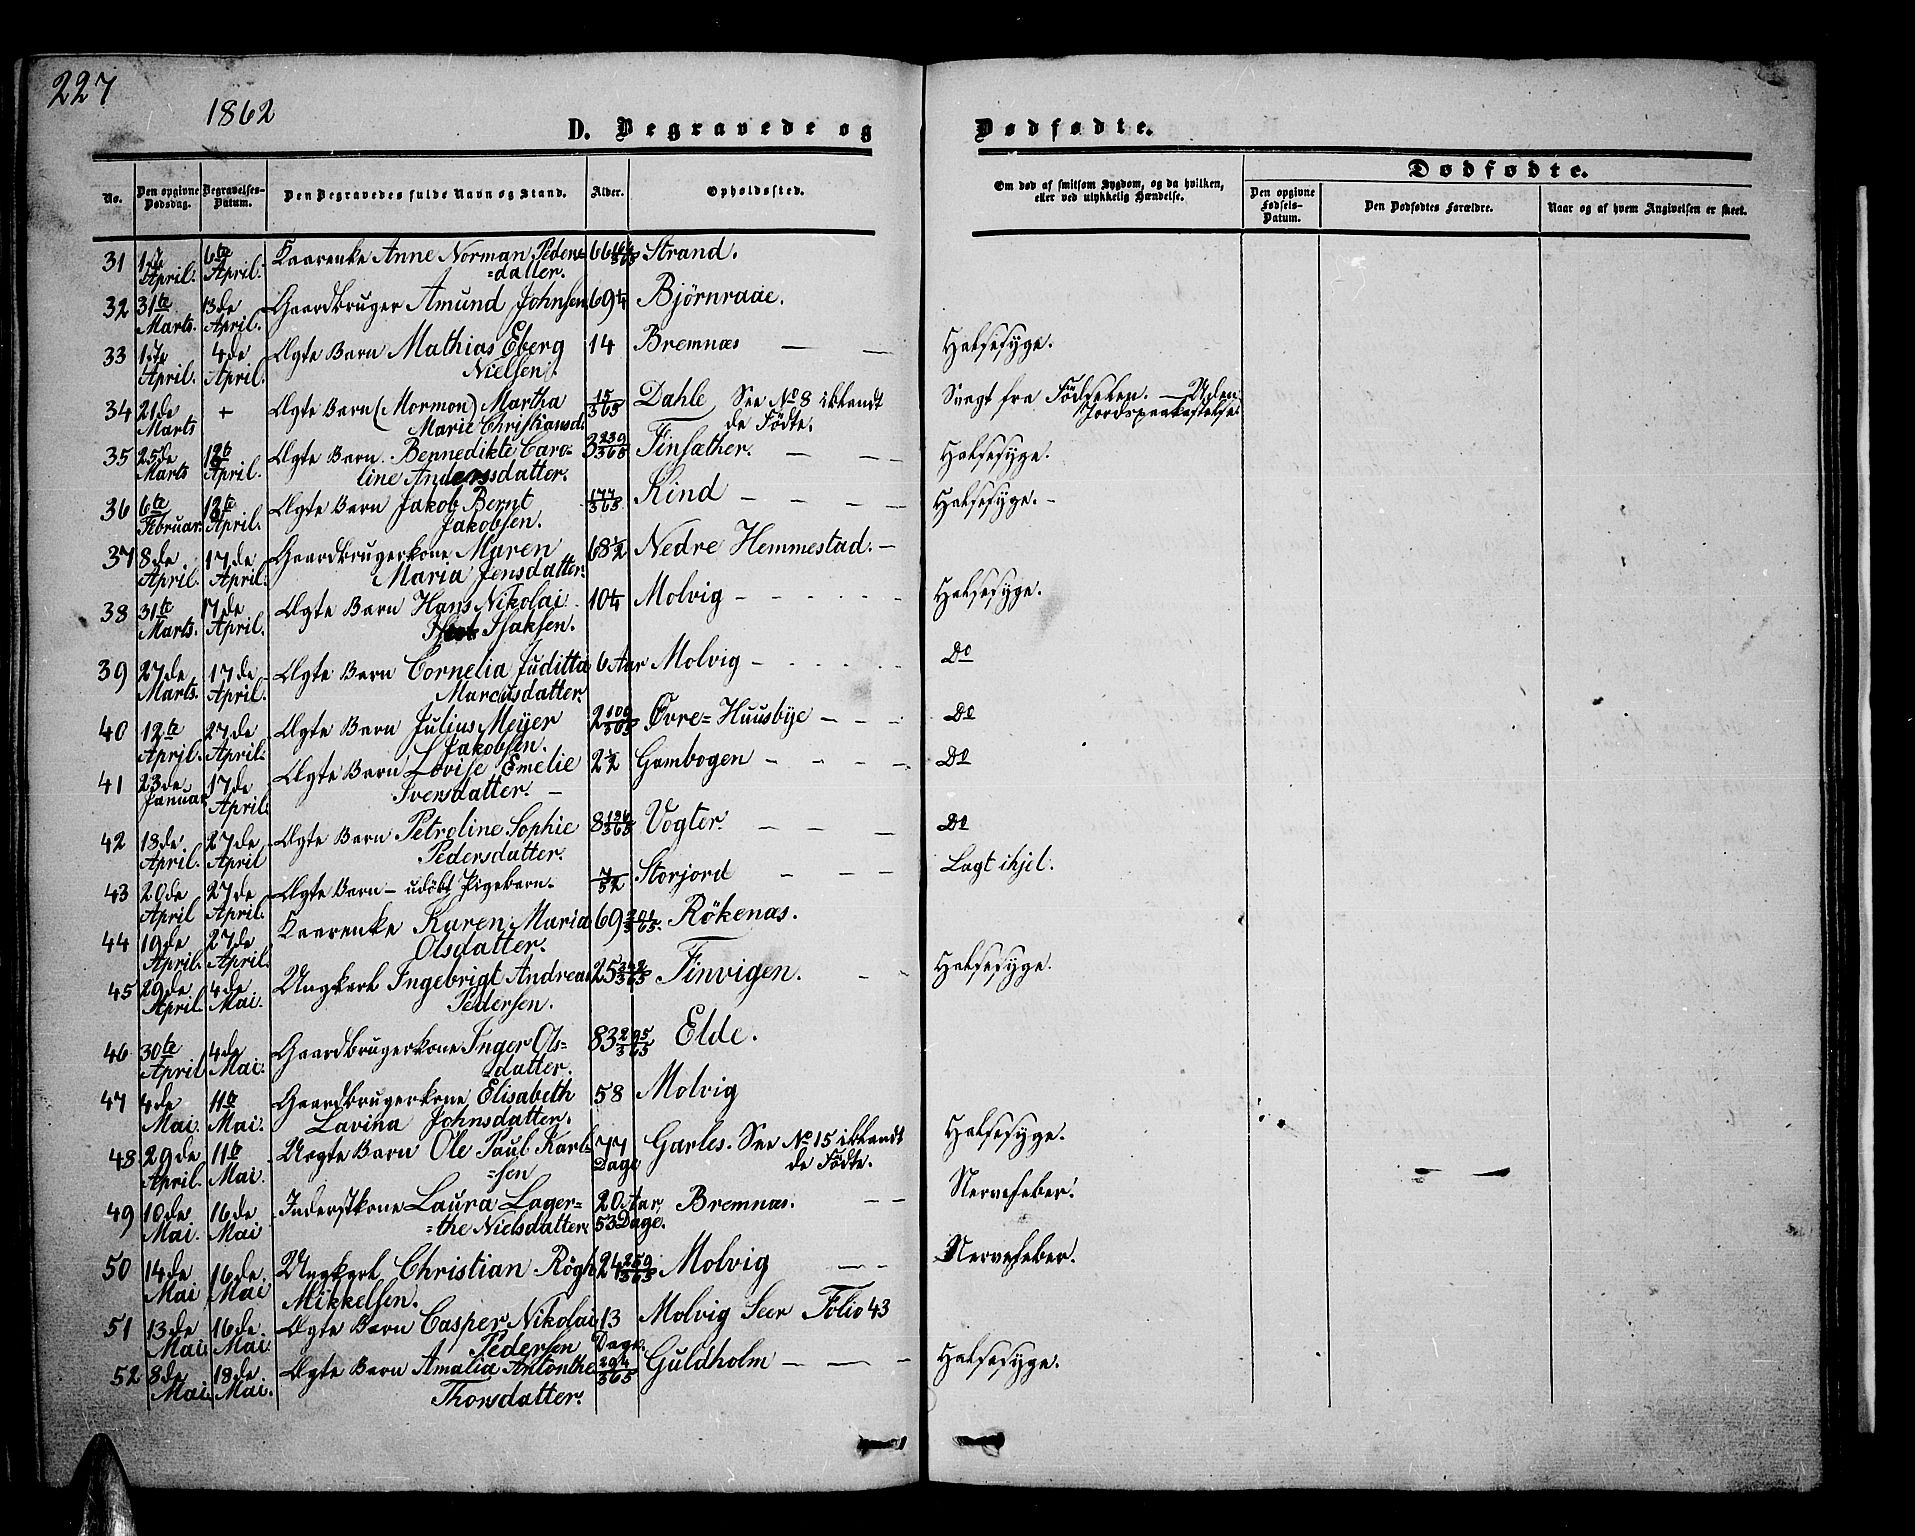 227
1862
D. Begravede og Dødfødte.
Dødfødte.
No.
Den opgivne Dødsdag.
Begravelses-Datum.
Den Begravedes fulde Navn og Stand.
Alder.
Opholdssted.
Om død af smitsom Sygdom, og da hvilken, eller ved ulykkelig Hændelse.
Den opgivne Fødsels-Datum.
Den Dødfødtes Forældre.
Naar og af hvem Angivelsen er skeet.
31 1ste April. 6te April. Kaarenke Anne Norman Peders=datter. 66 Strand.
32 31te Marts. 13de April. Gaardbruger Amund Johnsen 69 Björnraae.
33 1ste April. 4de April. Ægte Barn Mathias Eberg Nielsen. 14 Bremnæs — — Halsesyge.
34 21de Marts + Ægte Barn (Mormon) Martha Marie Christiansd. 15/365 Dahle See No 8 iblandt de Födte. Svagt fra Födselen. — Uden Jordspaakastelse.
35 25de Marts 12te April. Ægte Barn. Bennedikte Caro=line Andersdatter. 3 239/365 Finsæther. — — Halsesyge.
36 6te Februar. 12te April. Ægte Barn Jakob Bernt Jakobsen. 177/365 Kind — — — Halsesyge. -
37 8de April. 17de April. Gaardbrugerkone Maren Maria Jensdatter. 68 1/2 Nedre Hemmestad. —
38 31te Marts. 17de April. Ægte Barn Hans Nikolai Isaksen. 10 1/4 Molvig - - - - Halsesyge.
39 27de Marts. 17de April. Ægte Barn Cornelia Juditta Marcusdatter. 6 Aar Molvig - - - - Do
40 12te April. 27de April. Ægte Barn Julius Meÿer Jakobsen. 2 109/365 Övre=Huusbye - - - Do
41 23de Januar 17de April. Ægte Barn Lovise Emelie Svensdatter. — 2 1/2 Gambogen - - - Do
42 18de April. 27de April Ægte Barn Petroline Sophie Pedersdatter. 8 Vogter. — — — Do
43 20de April 27de April. Ægte Barn — udöbt Pigebarn. 7/52 Storjord - - - Lagt ihjel.
44 19de April. 27de April. Kaarenke Karen Maria Olsdatter. 69 Rökenæs.
45 29de April. 4de Mai. Ungkarl Ingebrigt Andreas Pedersen. 25 Finvigen. - - Halsesyge.
46 30te April 4de Mai. Gaardbrugerkone Inger Ols=datter. 83 295/365 Elde.
47 4de Mai. 11te Mai. Gaardbrugerkone Elisabeth Lavina Johnsdatter. 58 Molvig
48 29de April. 11te Mai. Uægte Barn Ole Paul Karl=sen 77 Dage Garles. See No 15 iblandt de Födte. Halsesyge.
49 10de Mai. 16de Mai Inderstkone Laura Lager=the Nielsdatter. 20 Aar, 53 Dage. Bremnæs. — — Nervefeber.
50 14de Mai 16de Mai Ungkarl Christian Rögh Mikkelsen. 24 259/365 Molvig — — Nervefeber.
51 13de Mai. 16de Mai. Ægte Barn Casper Nikolai Pedersen 13 Dage. Molvig Seer Folio 43
52 8de Mai 18de Mai. Ægte Barn Amalia Antonthe Thorsdatter. 294/365 Guldholm — — - Halsesyge.